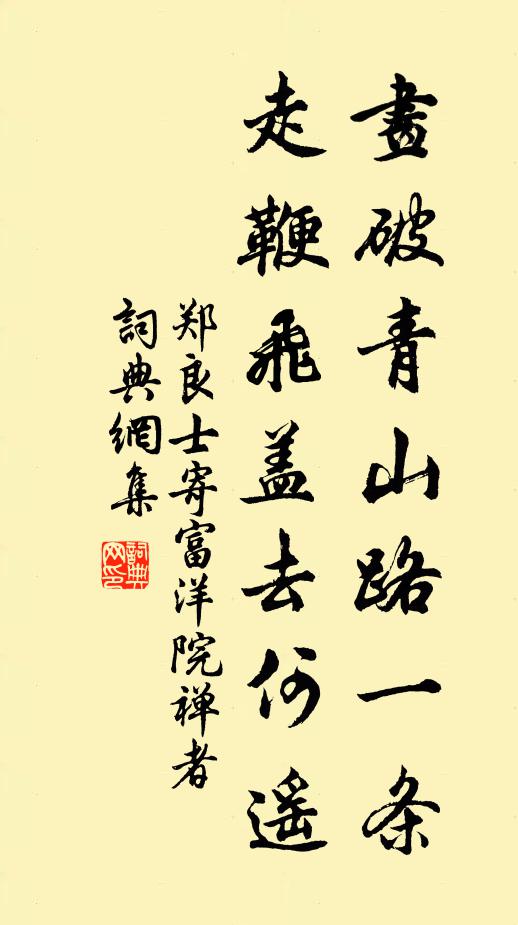 畫破青山路一条
走鞭飛盖去何遥
郑良士寄富洋院禅者
詞典網集
詞典网印